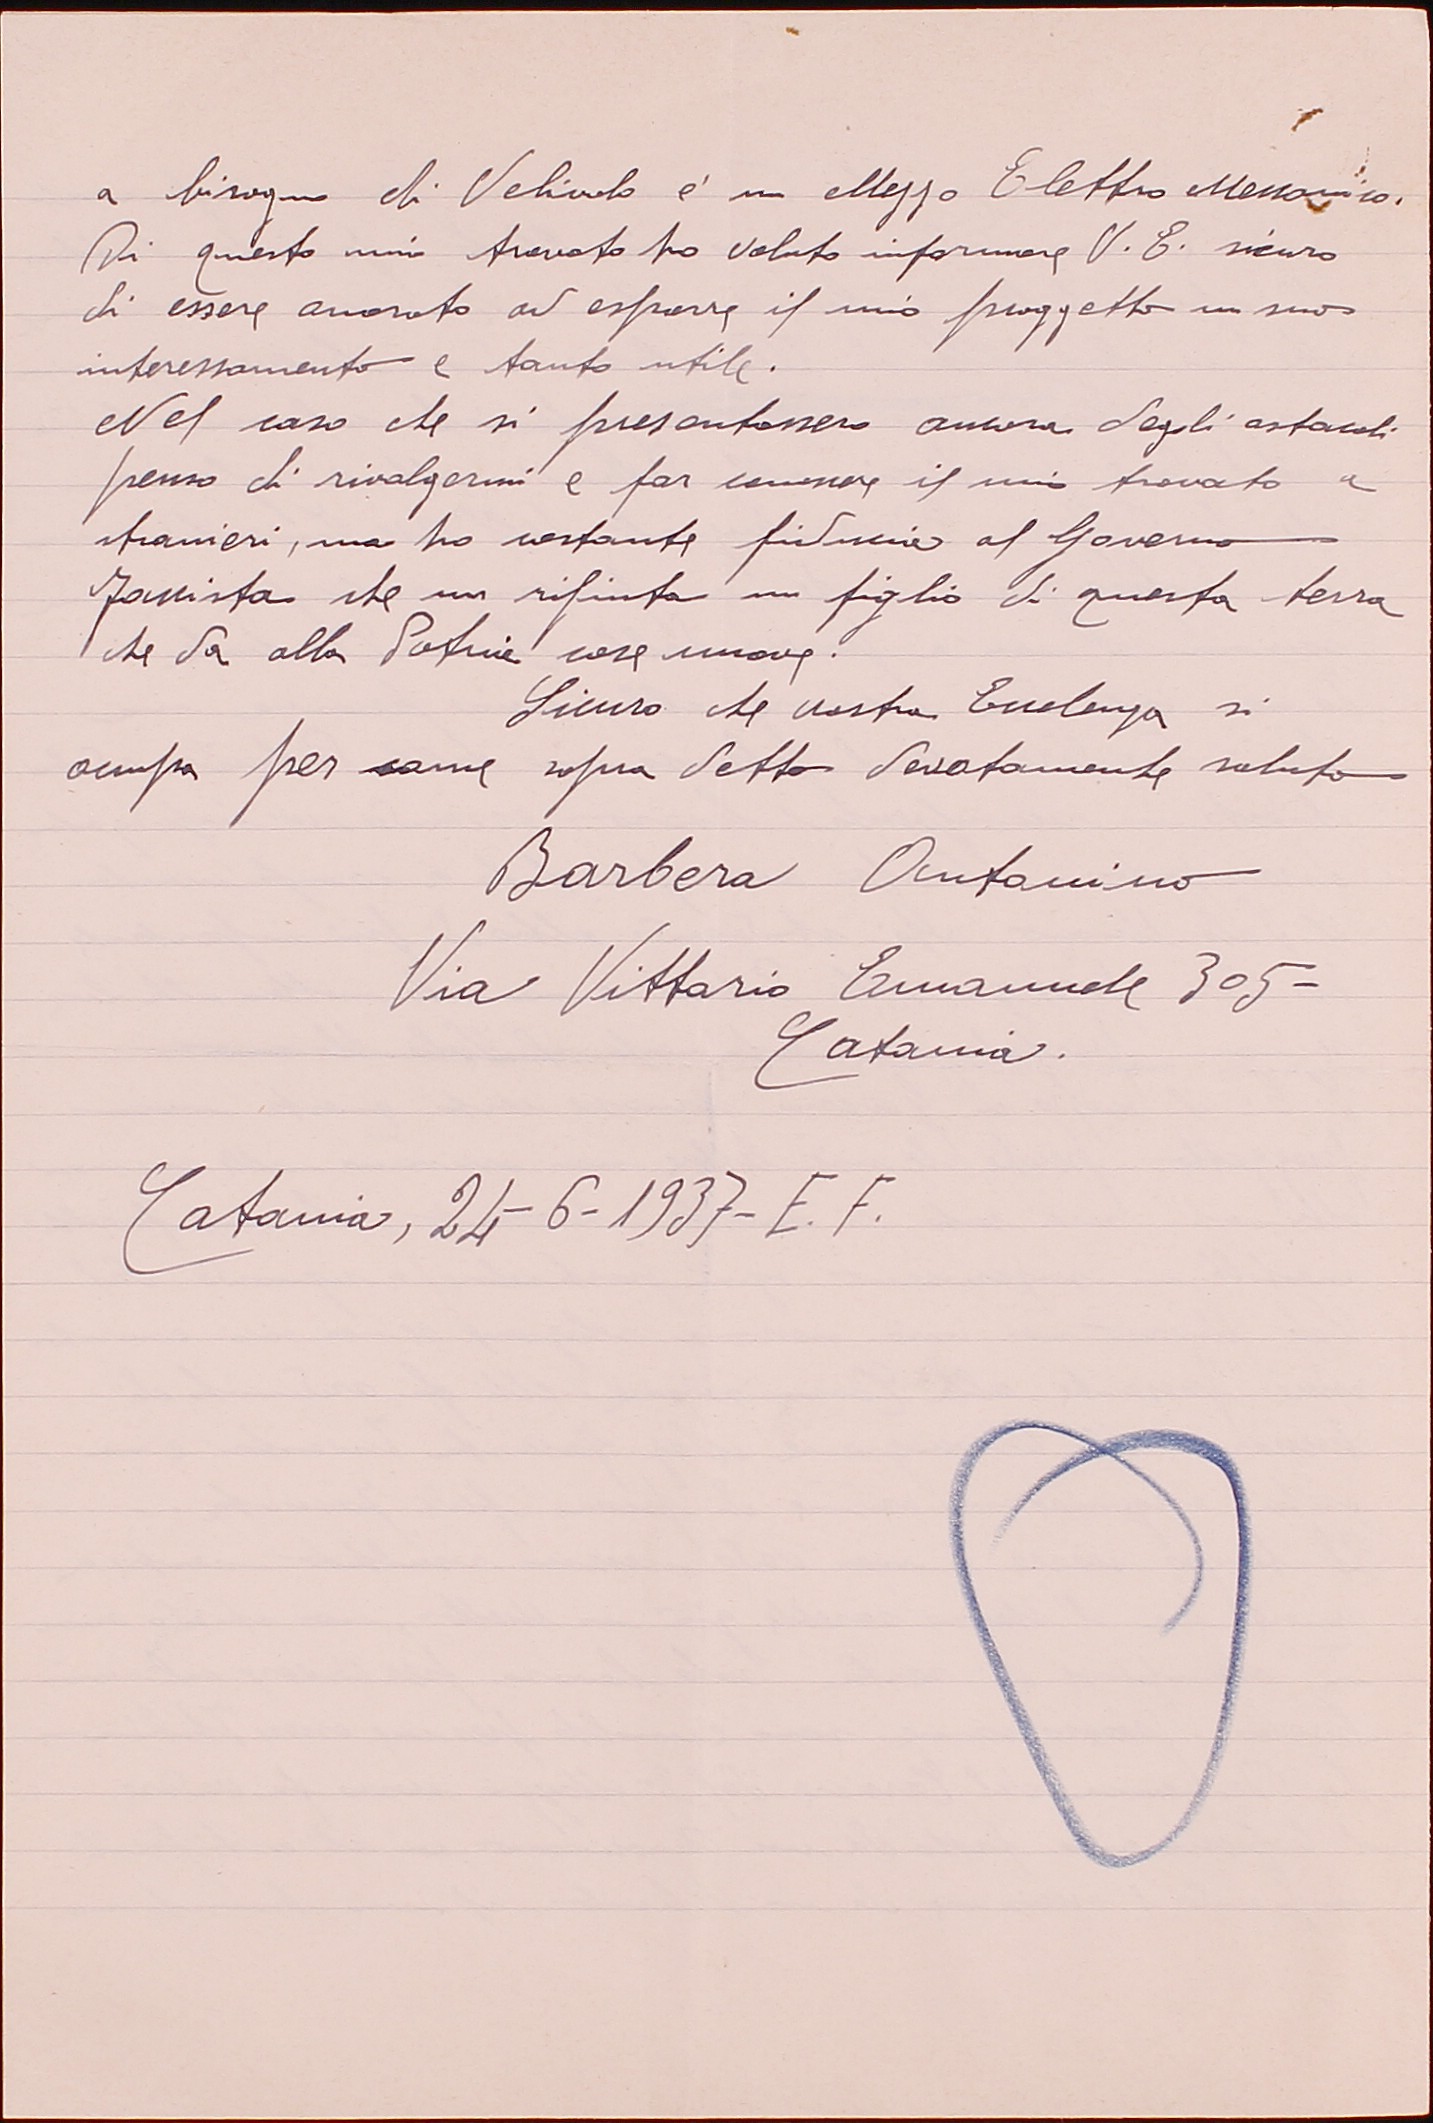 a bisogno di Velivolo e' un Mezzo Elettro Meccanico.
Di questo mio trovato ho voluto informare V. E. sicuro
di essere onorato ad esporre il mio proggetto un suo
interessamento e tanto utile.
Nel caso che si presentassero ancora degli ostacoli
penso di rivolgermi e far conoscere il mio trovato a
stranieri, ma ho costante fiducia al Governo
Fascista che un rifiuta un figlio di questa terra
che da alla Patria cose nuove.
Sicuro che vostra Eccelenza si
occupa per come sopra detto devotamente saluto
Barbera Antonino
Via Vittorio Emanuele 305-
Catania.
Catania, 24-6-1937- E. F.